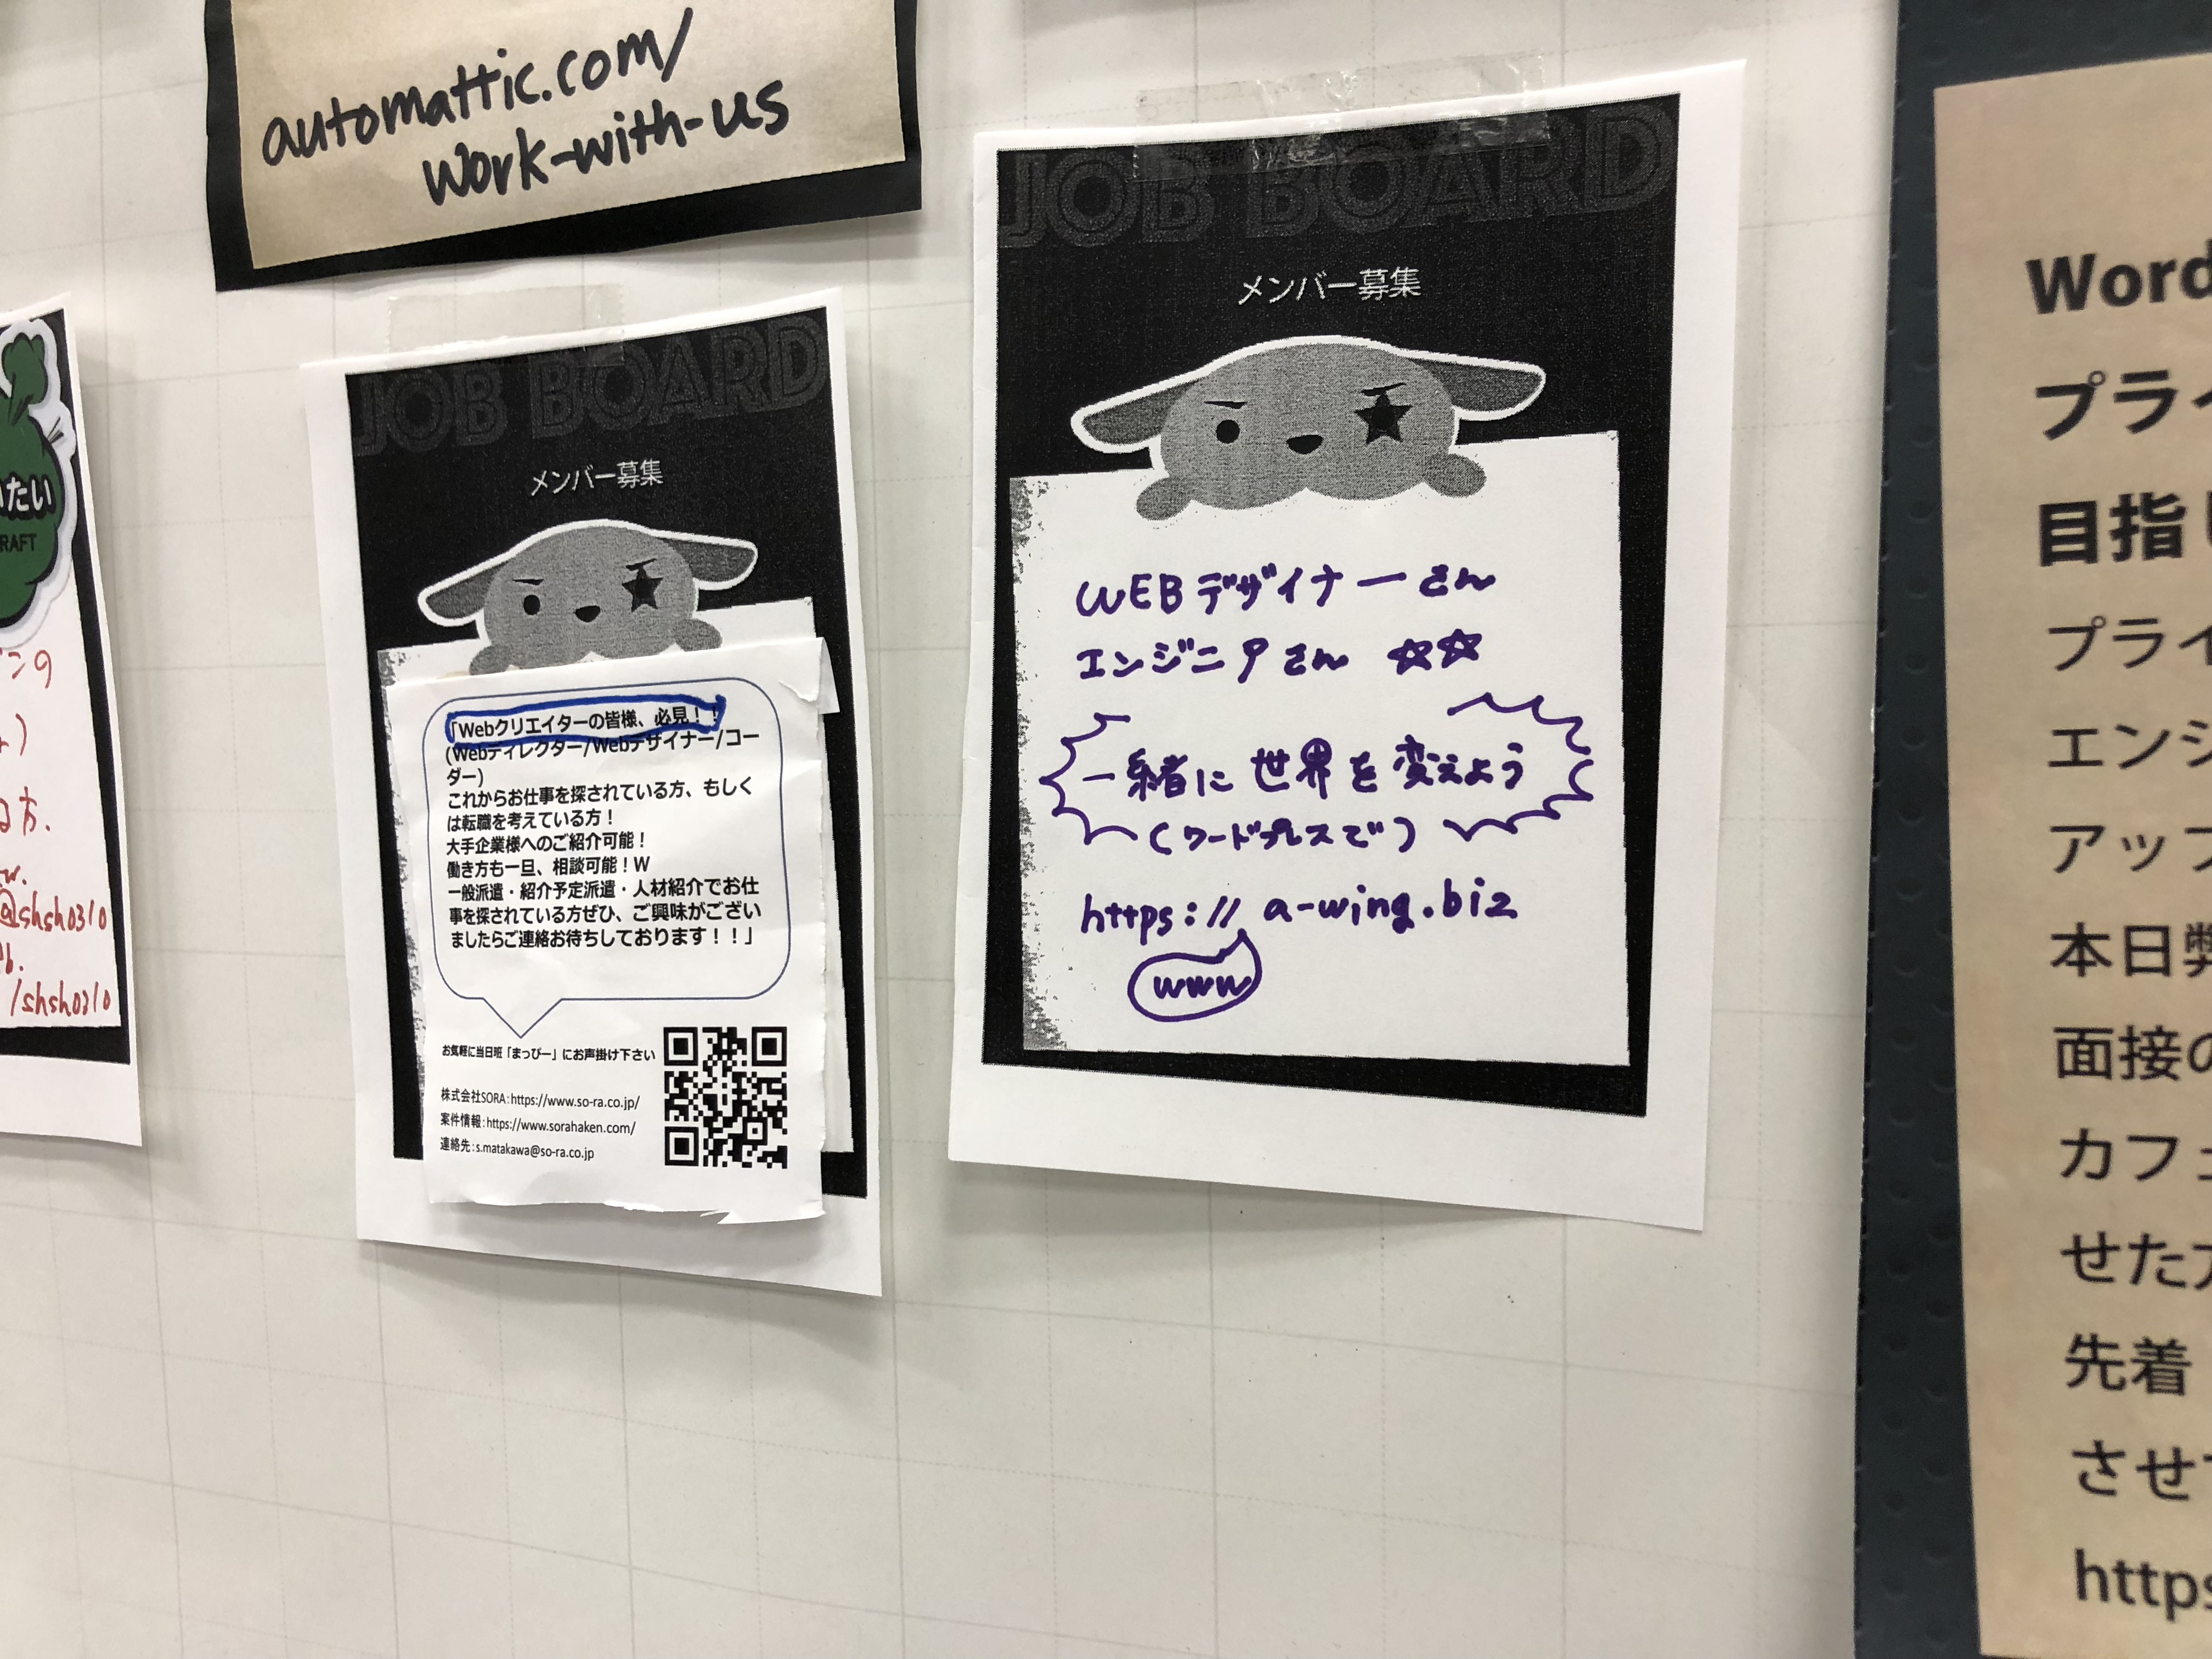 automattic.com/
work-with-us
JOB BOARD
メンバー募集
「Webクリエイターの皆様、必見！！
(Webディレクター/Webデザイナー/コー
ダー)
これからお仕事を探されている方、もしく
は転職を考えている方！
大手企業様へのご紹介可能！
働き方も一旦、相談可能！W
一般派遣・紹介予定派遣・人材紹介でお仕
事を探されている方ぜひ、ご興味がござい
ましたらご連絡お待ちしております！！」
お気軽に当日班「まっぴー」にお声掛け下さい
株式会社SORA：https://www.so-ra.co.jp/
案件情報：https://www.sorahaken.com/
連絡先：s.matakawa@so-ra.co.jp
JOB BOARD
メンバー募集
WEBデザイナーさん
エンジニアさん ☆☆
一緒に世界を変えよう
(ワードプレスで)
https://a-wing.biz
www
たい
RAFT
ンの
方.
w.
@shsh0310
b.
/shsh0310
Word
プライ
目指し
プライ
エンジ
アップ
本日弊
面接の
カフェ
せた方
先着
させ
https